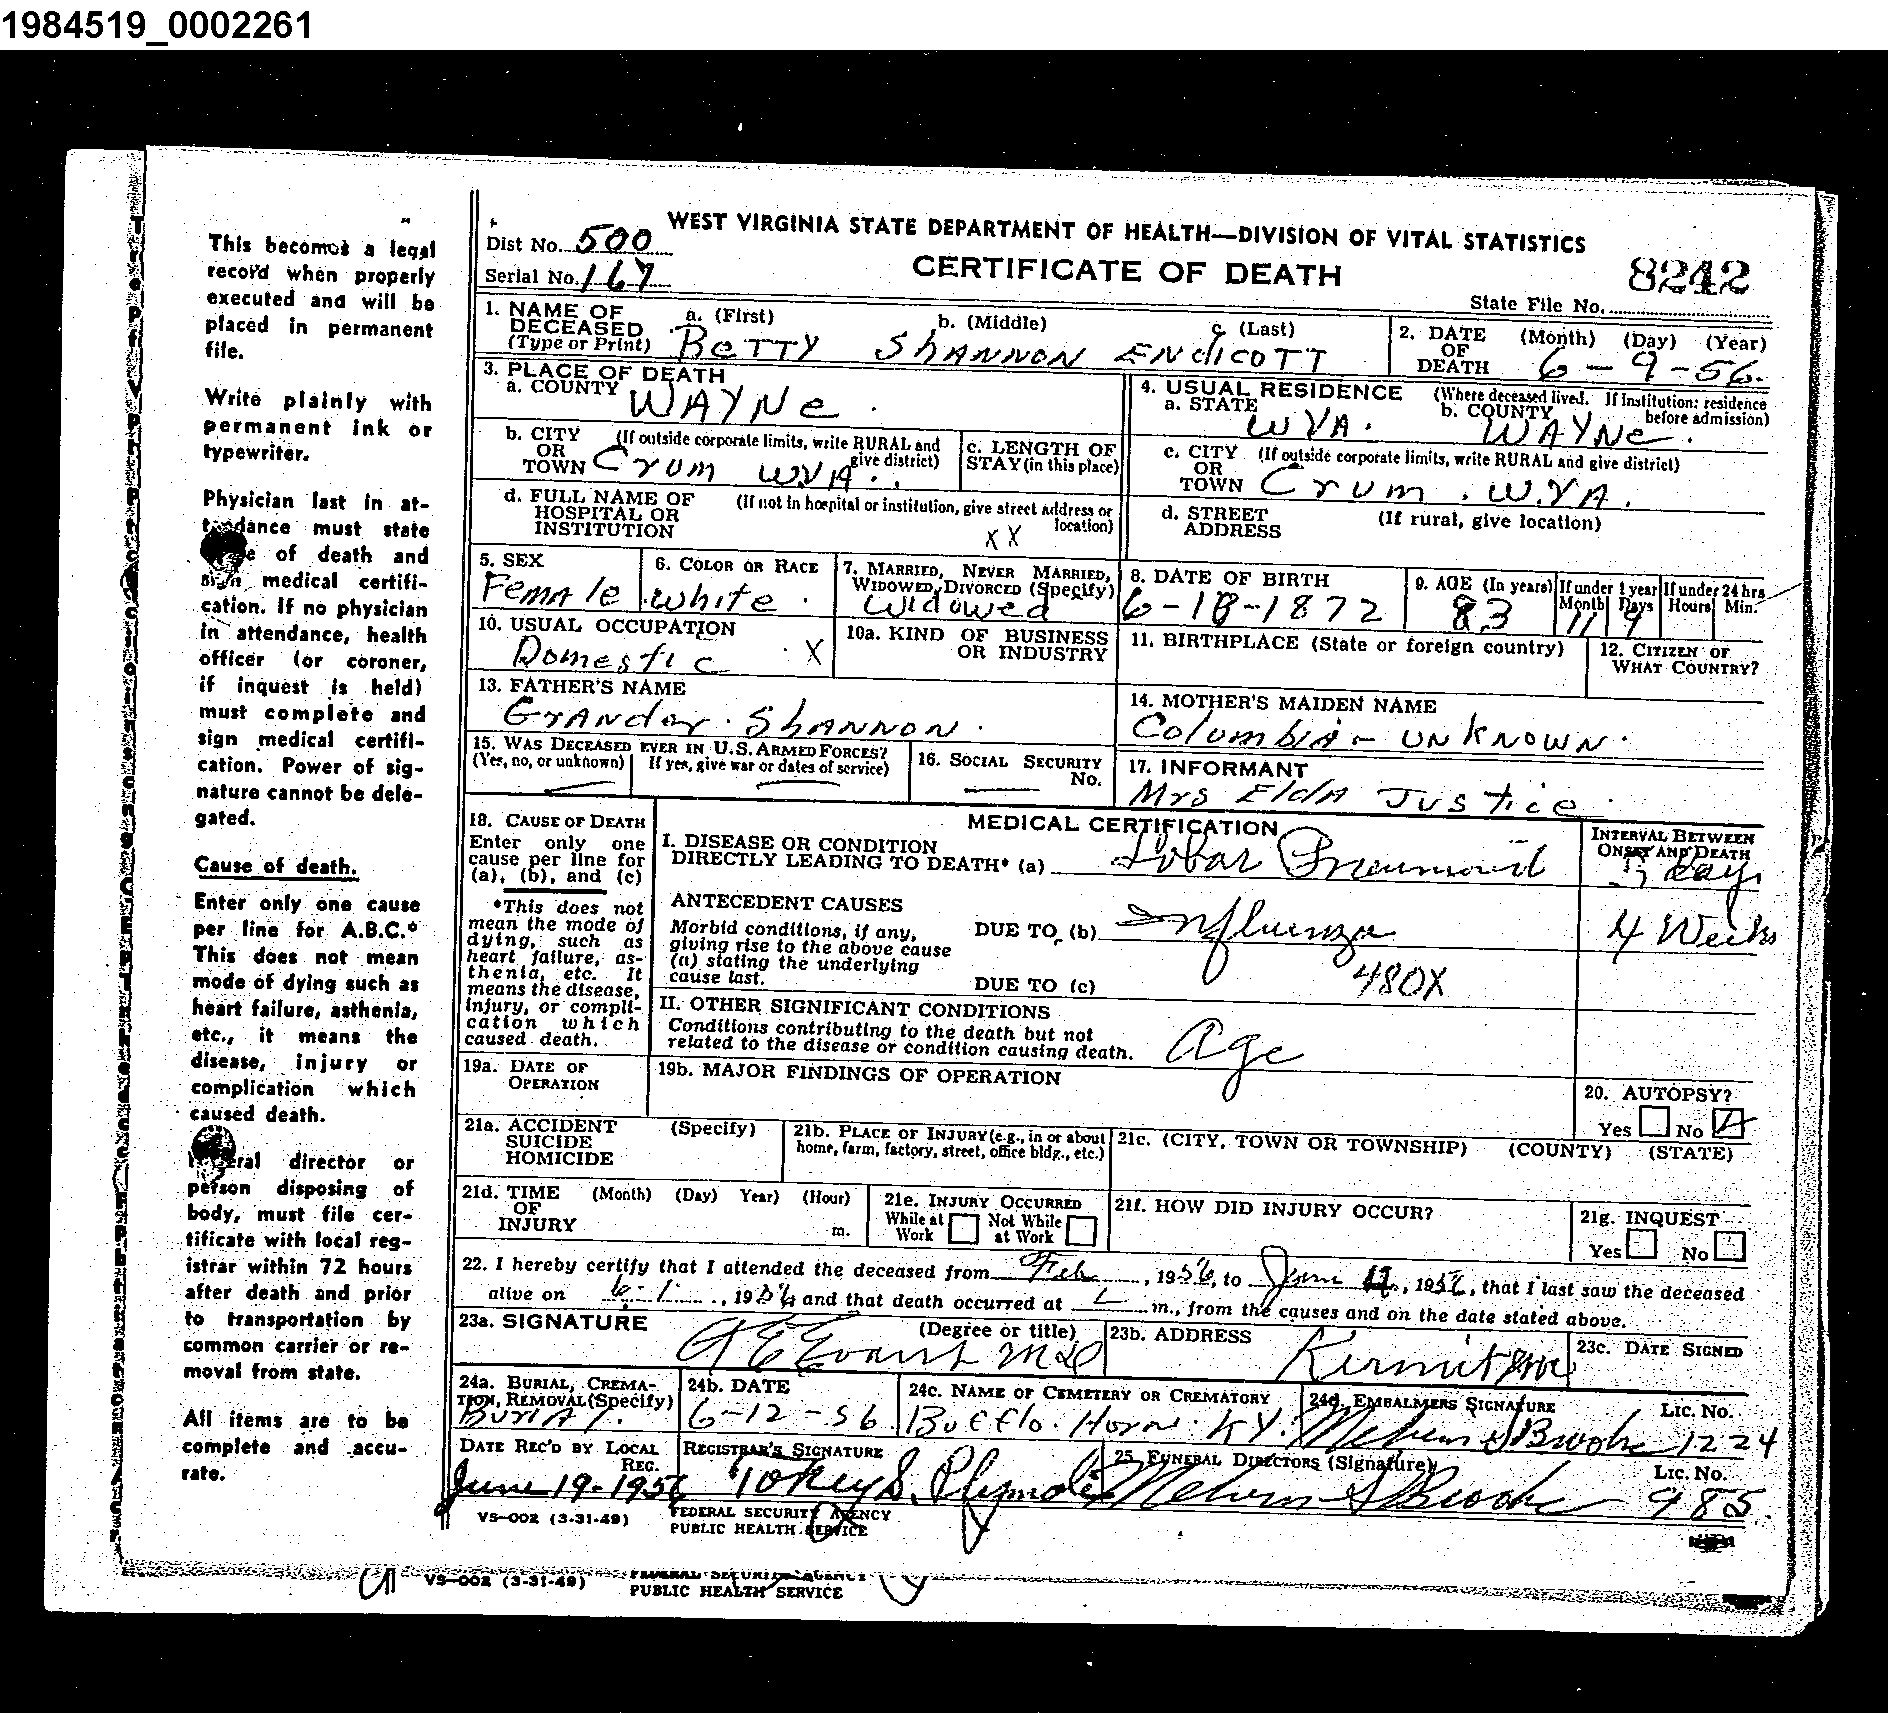 1984519_0002261
This becomes a legal
record when properly
executed and will be
placed in permanent
file.
Write plainly with
permanent ink or
typewriter.
Physician last in at-
tendance must state
of death and
sign medical certifi-
cation. If no physician
in attendance, health
officer (or coroner,
if inquest is held)
must complete and
sign medical certifi-
cation. Power of sig-
nature cannot be dele-
gated.
Cause of death.
Enter only one cause
per line for A.B.C.*
This does not mean
mode of dying such as
heart failure, asthenia,
etc., it means the
disease, injury or
complication which
caused death.
director or
person disposing of
body, must file cer-
tificate with local reg-
istrar within 72 hours
after death and prior
to transportation by
common carrier or re-
moval from state.
All items are to be
complete and accu-
rate.
WEST VIRGINIA STATE DEPARTMENT OF HEALTH—DIVISION OF VITAL STATISTICS
Dist No. 500
Serial No. 167
CERTIFICATE OF DEATH
8242
State File No.
1. NAME OF DECEASED (Type or Print) a. (First) b. (Middle) c. (Last)
BeTTY ShANNON ENdicoTT
2. DATE OF DEATH (Month) (Day) (Year)
6-9-56.
3. PLACE OF DEATH
a. COUNTY WAYNe.
4. USUAL RESIDENCE (Where deceased lived. If Institution: residence before admission)
a. STATE WVA. b. COUNTY WAYNe.
b. CITY OR TOWN (If outside corporate limits, write RURAL and give district) Crum WVA..
c. LENGTH OF STAY (in this place)
c. CITY OR TOWN (If outside corporate limits, write RURAL and give district) Crum. W.VA.
d. FULL NAME OF HOSPITAL OR INSTITUTION (If not in hospital or institution, give street address or location) XX
d. STREET ADDRESS (If rural, give location)
5. SEX FemAle
6. COLOR OR RACE white.
7. MARRIED, NEVER MARRIED, WIDOWED, DIVORCED (Specify) Widowed
8. DATE OF BIRTH 6-18-1872
9. AGE (In years) 83 If under 1 year Month 11 Days 9 If under 24 hrs Hours Min.
10. USUAL OCCUPATION Domestic X
10a. KIND OF BUSINESS OR INDUSTRY
11. BIRTHPLACE (State or foreign country)
12. CITIZEN OF WHAT COUNTRY?
13. FATHER'S NAME
ShANNON.
14. MOTHER'S MAIDEN NAME
ColumbiA - UNKNOWN.
15. WAS DECEASED EVER IN U.S. ARMED FORCES?
(Yes, no, or unknown) If yes, give war or dates of service)
16. SOCIAL SECURITY No.
17. INFORMANT
Mrs EldA Justice
18. CAUSE OF DEATH
Enter only one
cause per line for
(a), (b), and (c)
*This does not
mean the mode of
dying, such as
heart failure, as-
thenia, etc. It
means the disease,
injury, or compli-
cation which
caused death.
MEDICAL CERTIFICATION
INTERVAL BETWEEN ONSET AND DEATH
I. DISEASE OR CONDITION
DIRECTLY LEADING TO DEATH* (a) Lobar days
ANTECEDENT CAUSES
Morbid conditions, if any,
giving rise to the above cause
(a) stating the underlying
cause last.
DUE TO (b) Influenza 4 Weeks
DUE TO (c) 480X
II. OTHER SIGNIFICANT CONDITIONS
Conditions contributing to the death but not
related to the disease or condition causing death. Age
19a. DATE OF OPERATION
19b. MAJOR FINDINGS OF OPERATION
20. AUTOPSY?
Yes No
21a. ACCIDENT SUICIDE HOMICIDE (Specify)
21b. PLACE OF INJURY (e.g., in or about home, farm, factory, street, office bldg., etc.)
21c. (CITY, TOWN OR TOWNSHIP) (COUNTY) (STATE)
21d. TIME OF INJURY (Month) (Day) Year) (Hour) m.
21e. INJURY OCCURRED
While at Work Not While at Work
21f. HOW DID INJURY OCCUR?
21g. INQUEST
Yes No
22. I hereby certify that I attended the deceased from Feb, 1956, to June, 1956, that i last saw the deceased
alive on 6-1, 1956, and that death occurred at m., from the causes and on the date stated above.
23a. SIGNATURE (Degree or title)
23b. ADDRESS Kermit
23c. DATE SIGNED
24a. BURIAL, CREMATION, REMOVAL (Specify) BuriAl.
24b. DATE 6-12-56
24c. NAME OF CEMETERY OR CREMATORY Horn. KY.
24d. EMBALMERS SIGNATURE LIC. NO. 1224
DATE REC'D BY LOCAL REG. June 19-1956
REGISTRAR'S SIGNATURE
25. FUNERAL DIRECTORS (Signature) LIC. NO. 985
VS-002 (3-31-49)
FEDERAL SECURITY AGENCY
PUBLIC HEALTH SERVICE
VS-002 (3-31-49)
FEDERAL SECURITY AGENCY
PUBLIC HEALTH SERVICE